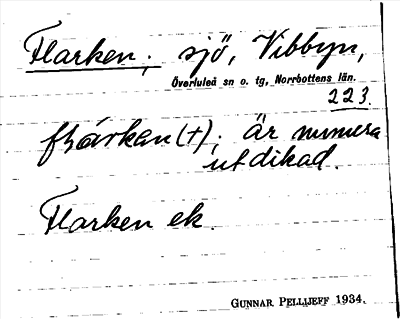 Flarken; sjö, Vibbyn,
Överluleå sn o. tg, Norrbottens län.
223.
flarken (+); är numera
utdikad.
Flarken ek.
GUNNAR PELLIJEFF 1934.